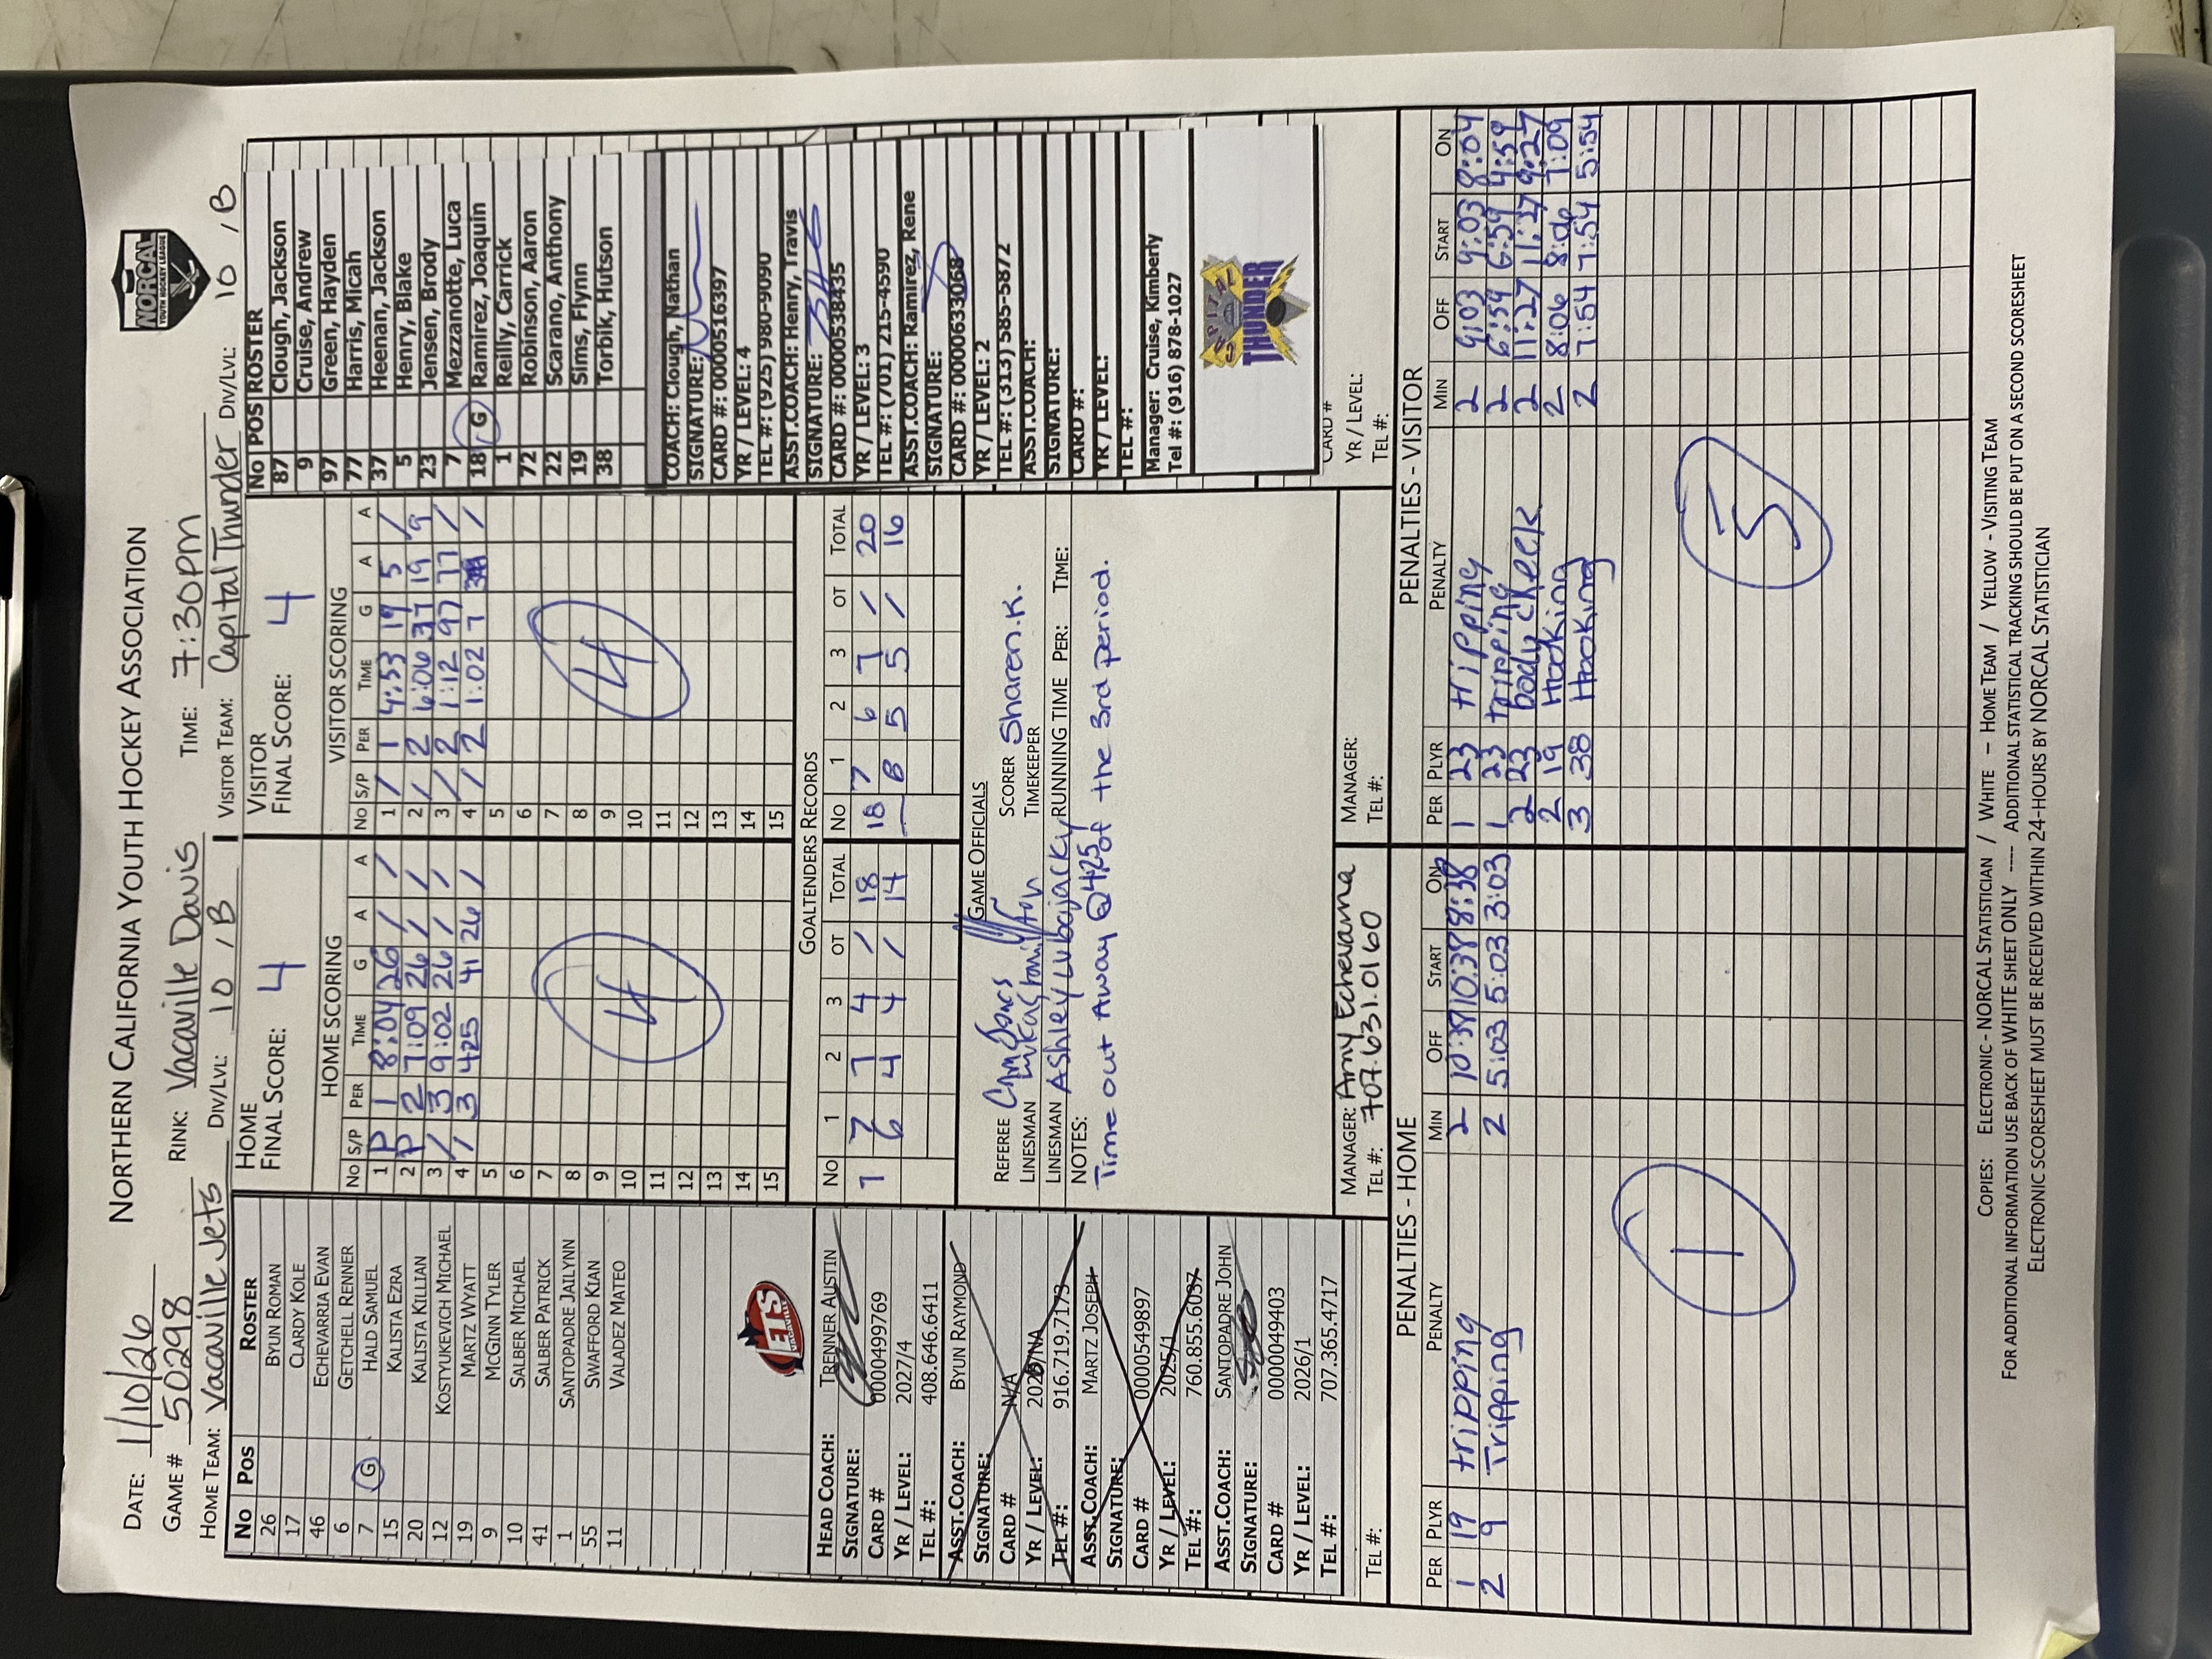 NORTHERN CALIFORNIA YOUTH HOCKEY ASSOCIATION
NORCAL
YOUTH HOCKEY LEAGUE
DATE: 1/10/26
GAME # 50298 RINK: Vacaville Davis TIME: 7:30pm
HOME TEAM: Vacaville Jets DIV/LVL: 10 / B VISITOR TEAM: Capital Thunder DIV/LVL: 10 / B
No Pos ROSTER
26 BYUN ROMAN
17 CLARDY KOLE
46 ECHEVARRIA EVAN
6 GETCHELL RENNER
7 G HALD SAMUEL
15 KALISTA EZRA
20 KALISTA KILLIAN
12 KOSTYUKEVICH MICHAEL
19 MARTZ WYATT
9 MCGINN TYLER
10 SALBER MICHAEL
41 SALBER PATRICK
1 SANTOPADRE JAILYNN
55 SWAFFORD KIAN
11 VALADEZ MATEO
JETS
HEAD COACH: TRENNER AUSTIN
SIGNATURE:
CARD # 0000499769
YR / LEVEL: 2027/4
TEL #: 408.646.6411
ASST.COACH: BYUN RAYMOND
SIGNATURE:
CARD # N/A
YR / LEVEL:
TEL #: 916.719.7173
ASST.COACH: MARTZ JOSEPH
SIGNATURE:
CARD # 0000549897
YR / LEVEL: 2025/1
TEL #: 760.855.6037
ASST.COACH: SANTOPADRE JOHN
SIGNATURE:
CARD # 0000049403
YR / LEVEL: 2026/1
TEL #: 707.365.4717
TEL #:
HOME
FINAL SCORE: 4
HOME SCORING
No S/P PER TIME G A A
1 P 1 8:04 26 / /
2 P 2 7:09 26 / /
3 / 3 9:02 26 / /
4 / 3 425 41 26 /
5
6
7
8
9
10
11
12
13
14
15
4
VISITOR
FINAL SCORE: 4
VISITOR SCORING
No S/P PER TIME G A A
1 / 1 4:53 19 5 /
2 / 2 6:06 37 19 9
3 / 2 1:12 97 77 /
4 / 2 1:02 7 /
5
6
7
8
9
10
11
12
13
14
15
4
GOALTENDERS RECORDS
No 1 2 3 OT TOTAL No 1 2 3 OT TOTAL
7 7 7 4 / 18 18 7 6 7 / 20
6 4 4 / 14 8 5 5 / 16
GAME OFFICIALS
REFEREE SCORER Sharen.K.
LINESMAN Lukas Hamilton TIMEKEEPER
LINESMAN Ashley Lubajacky RUNNING TIME PER: TIME:
NOTES:
Time out Away @ 4:25 of the 3rd period.
MANAGER: Amy Echevarria
TEL #: 707.631.0160
MANAGER:
TEL #:
No POS ROSTER
87 Clough, Jackson
9 Cruise, Andrew
97 Green, Hayden
77 Harris, Micah
37 Heenan, Jackson
5 Henry, Blake
23 Jensen, Brody
7 Mezzanotte, Luca
18 G Ramirez, Joaquin
1 Reilly, Carrick
72 Robinson, Aaron
22 Scarano, Anthony
19 Sims, Flynn
38 Torbik, Hutson
COACH: Clough, Nathan
SIGNATURE:
CARD #: 0000516397
YR / LEVEL: 4
TEL #: (925) 980-9090
ASST.COACH: Henry, Travis
SIGNATURE:
CARD #: 0000538435
YR / LEVEL: 3
TEL #: (701) 215-4590
ASST.COACH: Ramirez, Rene
SIGNATURE:
CARD #: 0000633068
YR / LEVEL: 2
TEL #: (313) 585-5872
ASST.COACH:
SIGNATURE:
CARD #:
YR / LEVEL:
TEL #:
Manager: Cruise, Kimberly
Tel #: (916) 878-1027
CAPITAL
THUNDER
CARD #
YR / LEVEL:
TEL #:
PENALTIES - HOME
PER PLYR PENALTY MIN OFF START ON
1 19 tripping 2 10:38 10:38 8:38
2 9 Tripping 2 5:03 5:03 3:03
1
PENALTIES - VISITOR
PER PLYR PENALTY MIN OFF START ON
1 23 tripping 2 9:03 9:03 8:04
1 23 tripping 2 6:59 6:59 4:59
2 23 body check 2 11:27 11:27 9:27
2 19 Hooking 2 8:06 8:06 7:09
3 38 Hooking 2 7:54 7:54 5:54
5
COPIES: ELECTRONIC - NORCAL STATISTICIAN / WHITE – HOME TEAM / YELLOW - VISITING TEAM
FOR ADDITIONAL INFORMATION USE BACK OF WHITE SHEET ONLY ---- ADDITIONAL STATISTICAL TRACKING SHOULD BE PUT ON A SECOND SCORESHEET
ELECTRONIC SCORESHEET MUST BE RECEIVED WITHIN 24-HOURS BY NORCAL STATISTICIAN